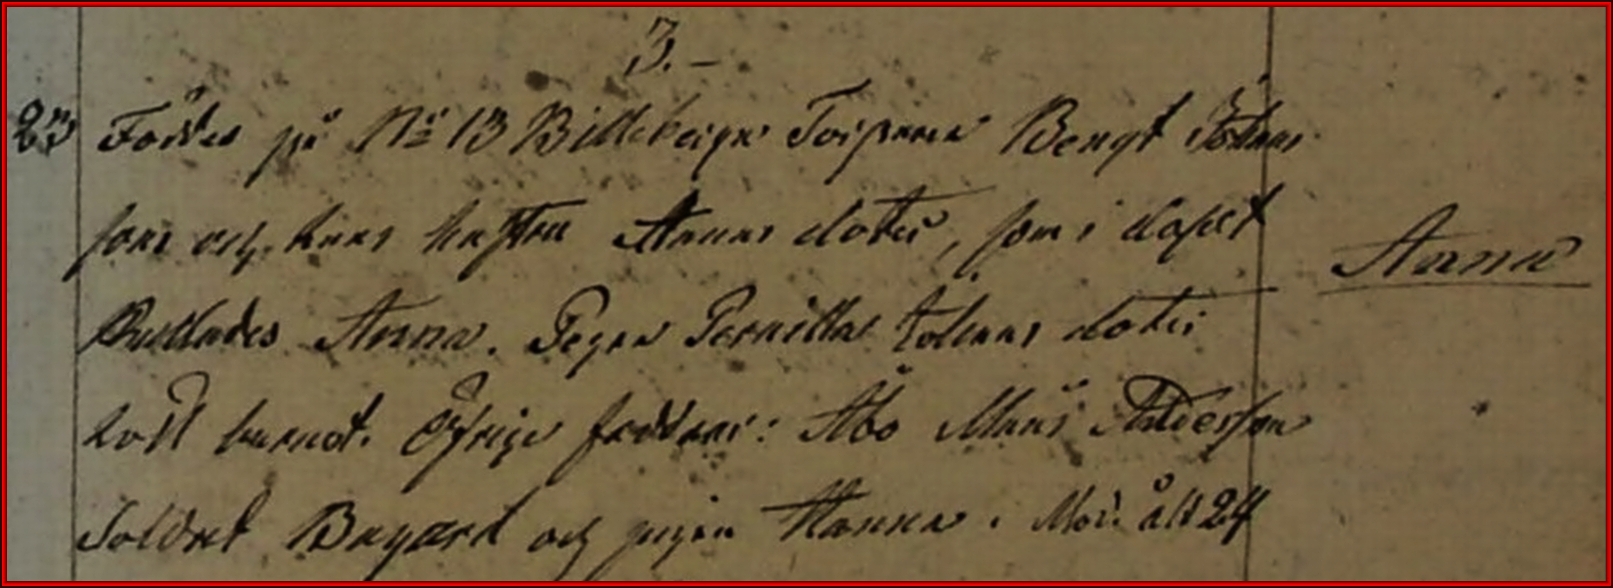 3.
23 Föddes på No 13 Billeberga Torparen Bengt Johans
sons och hans hustru Hanna dotter, som i dopet
kallades Anna. Pigan Pernilla Johans dotter
höll barnet. Öfrige faddrar: Åbo Måns Andersson
Soldat och pigan Hanna. Mod. ålder 24
Anna